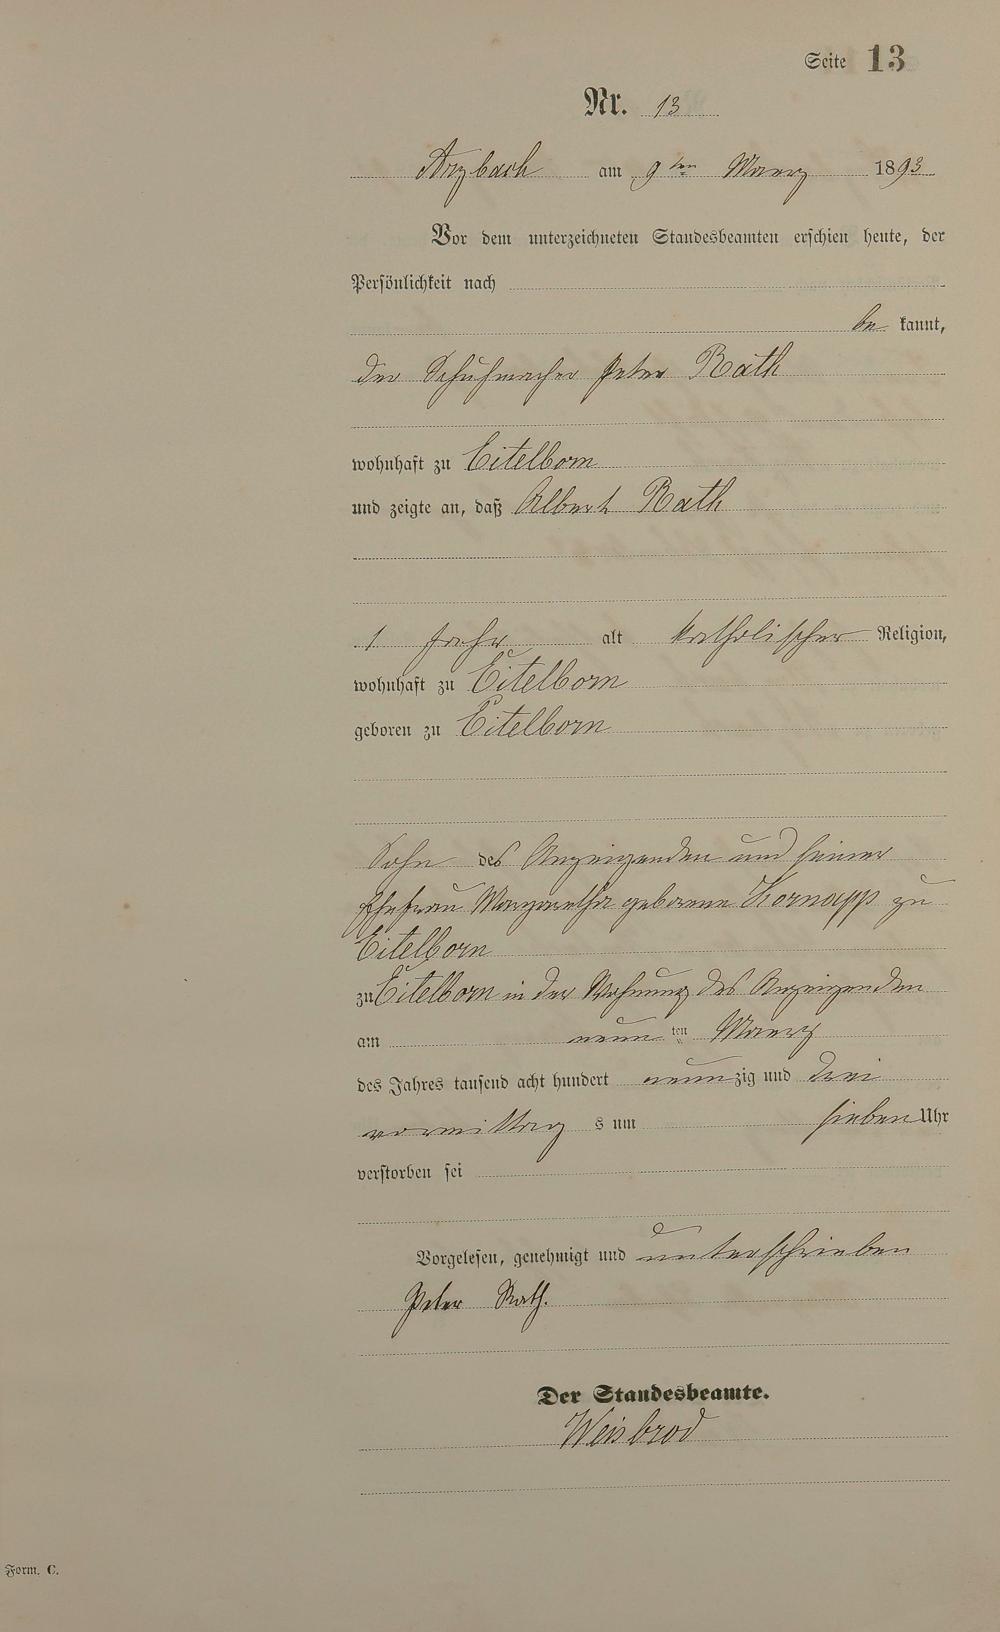 Seite 13
Nr. 13
Arzbach am 9ten Maerz 1893
Vor dem unterzeichneten Standesbeamten erschien heute, der
Persönlichkeit nach
be kannt,
der Schuhmacher Peter Rath
wohnhaft zu Eitelborn
und zeigte an, daß Albert Rath
1 Jahr alt katholischer Religion,
wohnhaft zu Eitelborn
geboren zu Eitelborn
Sohn des Anzeigenden und seiner
Ehefrau Margaretha geborene Kornapp zu
Eitelborn
zu Eitelborn in der Wohnung des Anzeigenden
am neun ten Maerz
des Jahres tausend acht hundert neunzig und drei
vormittag s um sieben Uhr
verstorben sei
Vorgelesen, genehmigt und unterschrieben
Peter Rath.
Der Standesbeamte.
Weisbrod
Form. C.